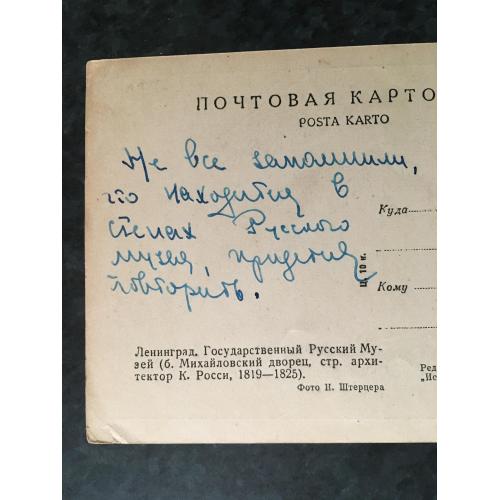 ПОЧТОВАЯ КАРТО
POSTA KARTO
Не все запомнили,
что находится в
стенах Русского
музея, придется
повторить.
Куда
Ц. 10 к.
Кому
Ленинград. Государственный Русский Му-
зей (б. Михайловский дворец, стр. архи-
тектор К. Росси, 1819—1825).
Фото И. Штерцера
Ред
„Ис